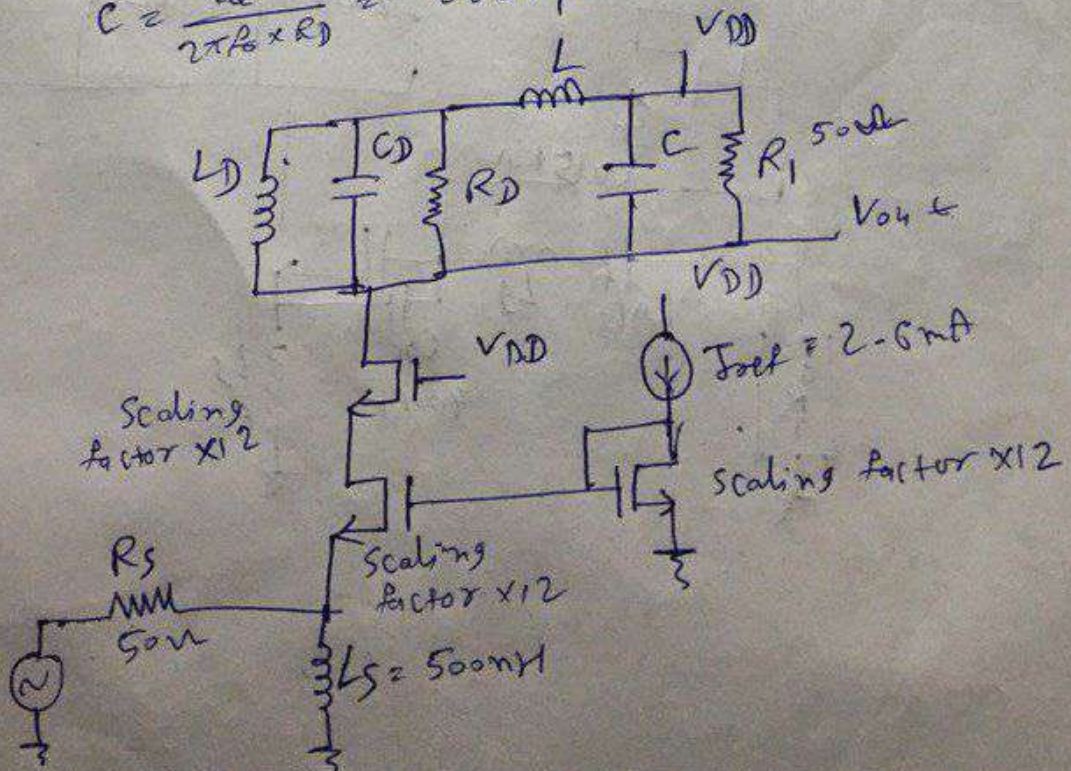 C =
2πf₀ × RD
L
VDD
LD
CD
RD
C
R1
50Ω
Vout
VDD
VDD
Iref = 2.6mA
Scaling
factor X12
scaling factor X12
Scaling
factor X12
Rs
50Ω
Ls = 500nH